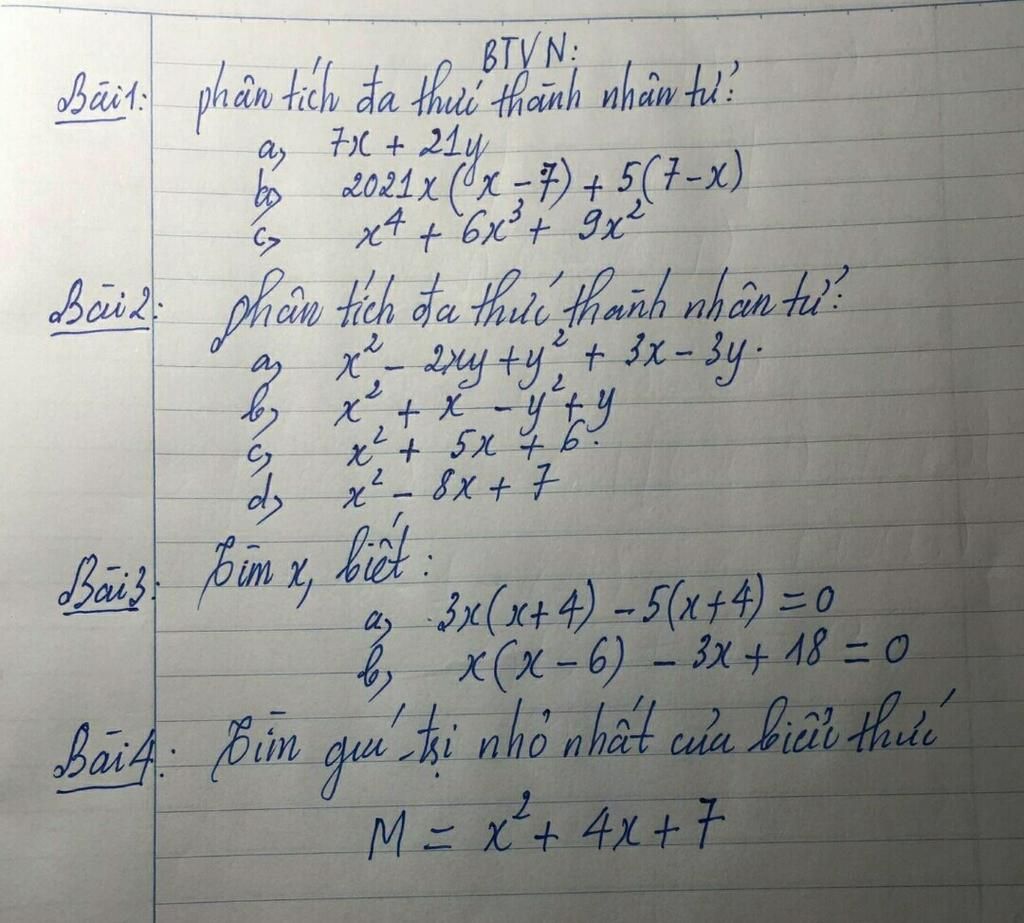 BTVN:
Bài 1: phân tích đa thức thành nhân tử:
a, 7x + 21y
b, 2021x(x - 7) + 5(7 - x)
c, x⁴ + 6x³ + 9x²
Bài 2: phân tích đa thức thành nhân tử:
a, x² - 2xy + y² + 3x - 3y.
b, x² + x - y² + y
c, x² + 5x + 6.
d, x² - 8x + 7
Bài 3: Tìm x, biết:
a, 3x(x + 4) - 5(x + 4) = 0
b, x(x - 6) - 3x + 18 = 0
Bài 4: Tìm giá trị nhỏ nhất của biểu thức
M = x² + 4x + 7